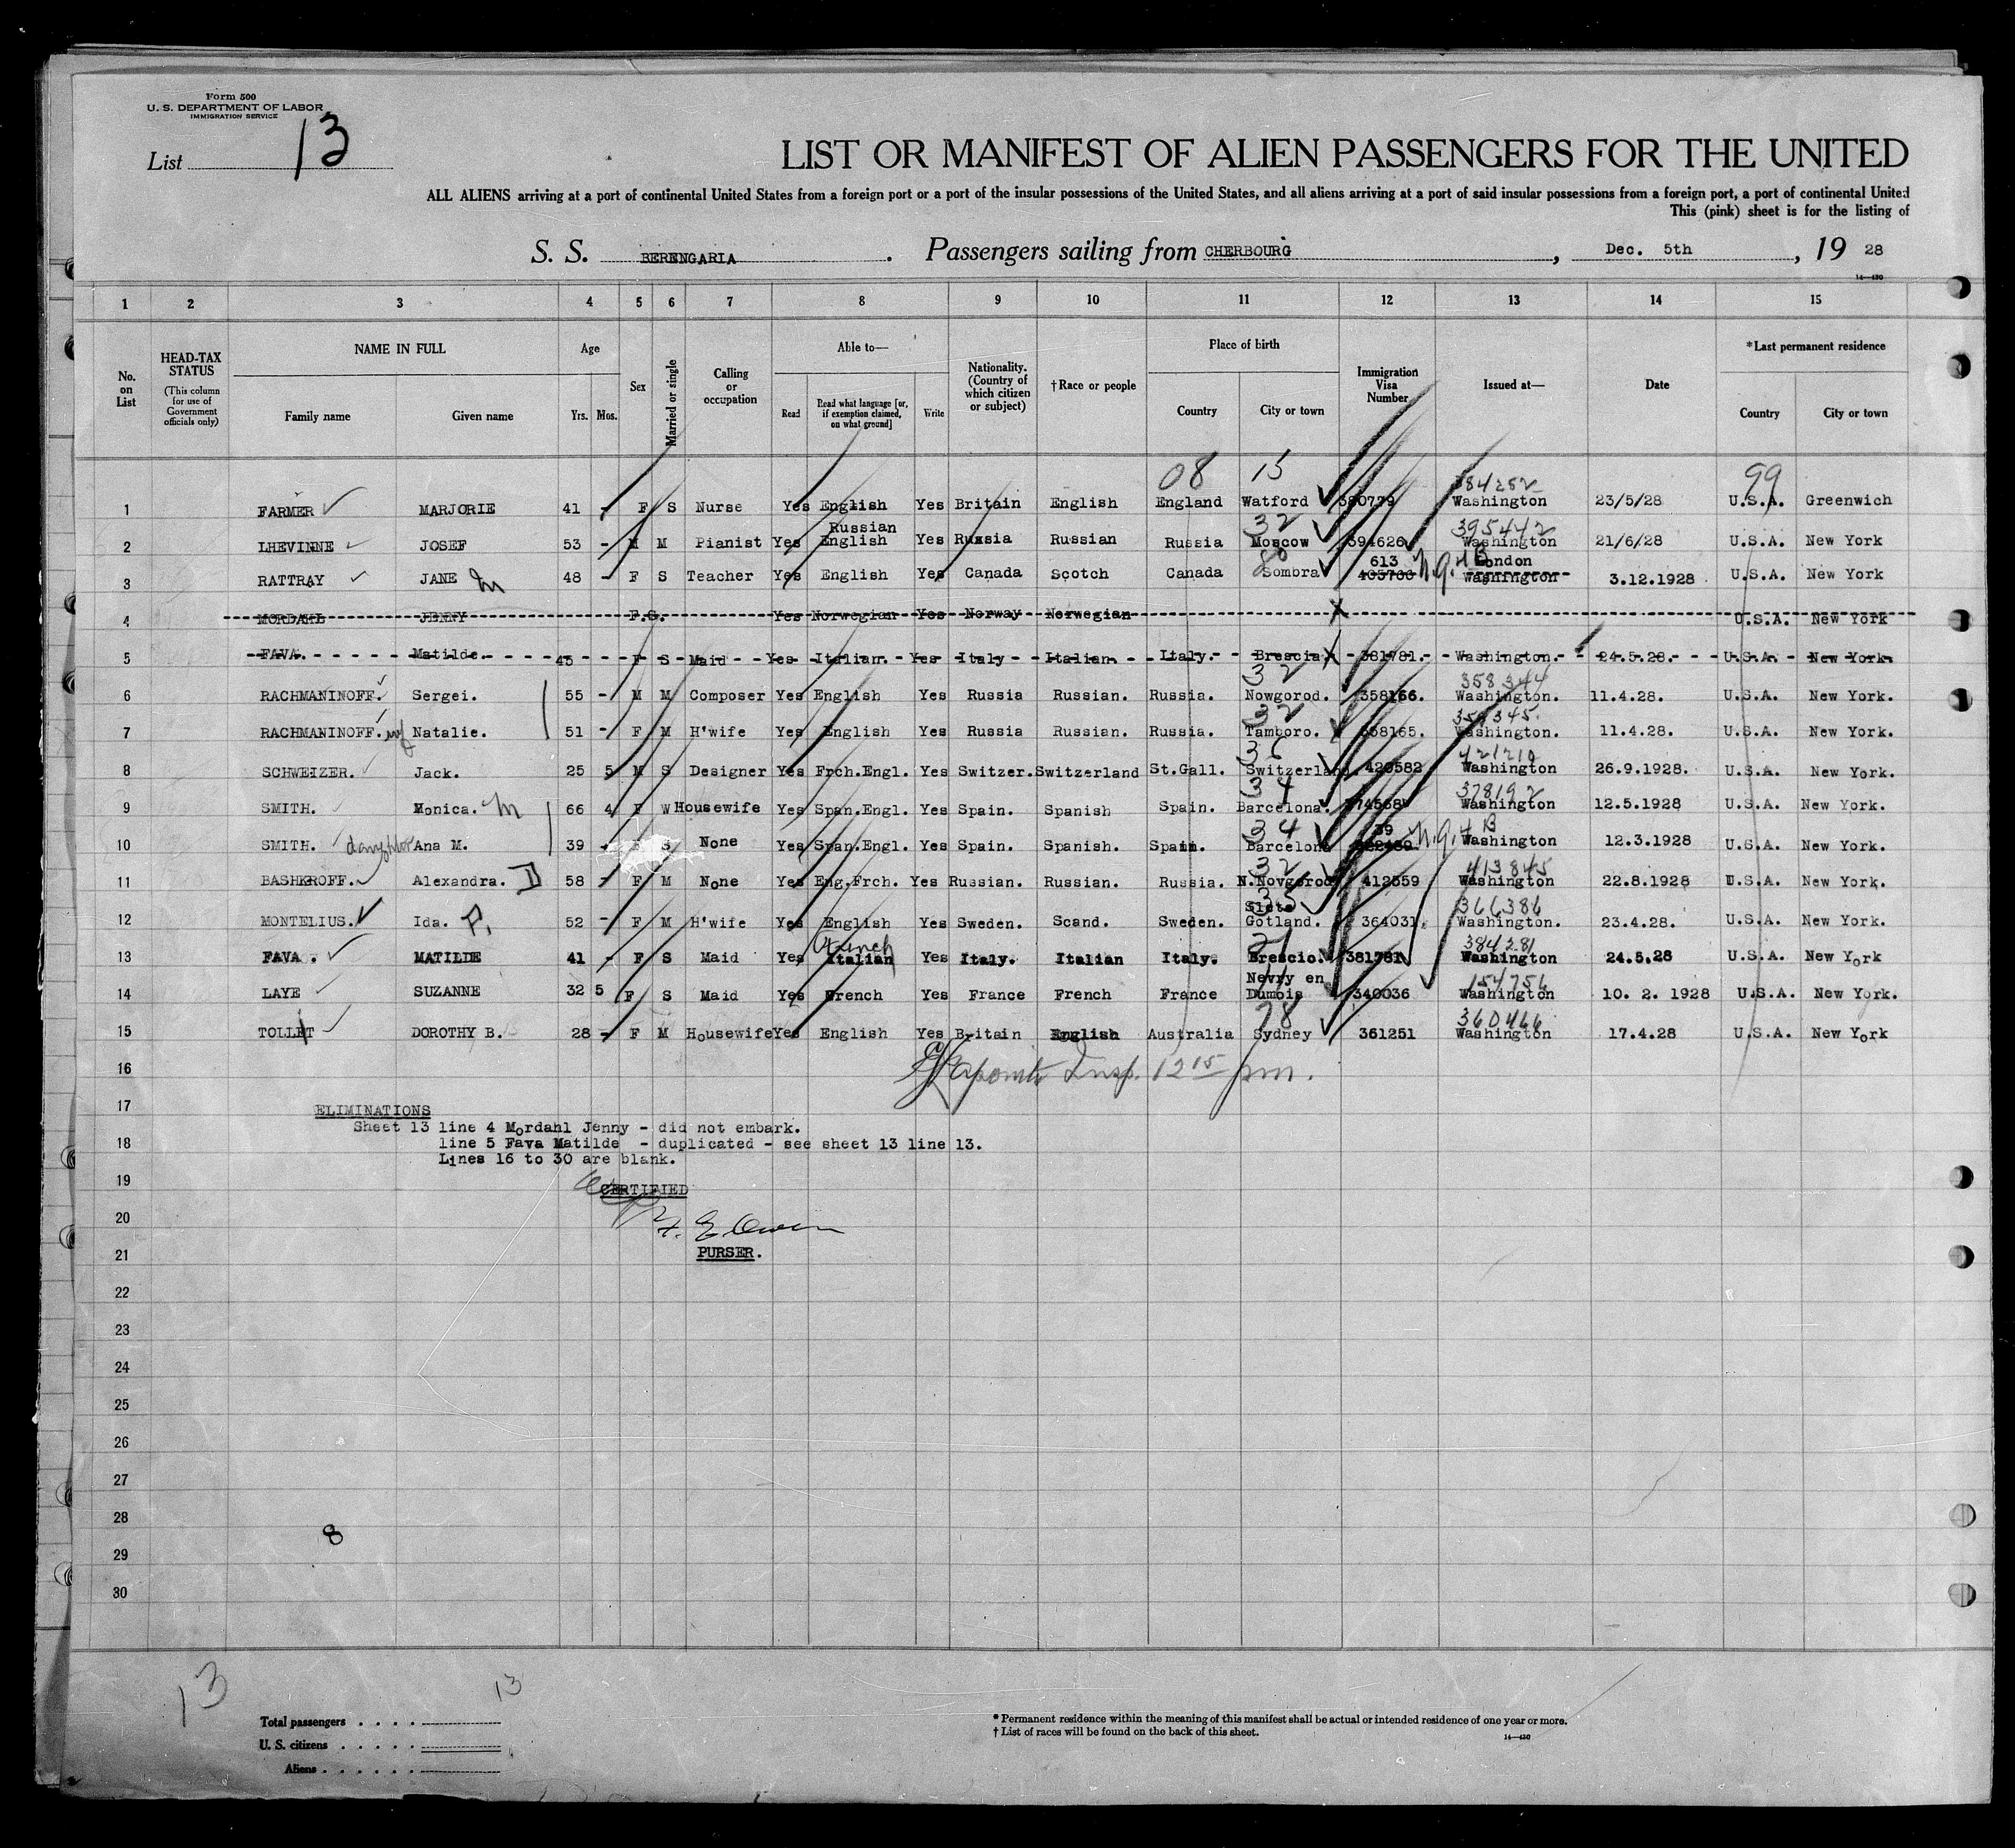 Form 500
U. S. DEPARTMENT OF LABOR
IMMIGRATION SERVICE
List 13
LIST OR MANIFEST OF ALIEN PASSENGERS FOR THE UNITED
ALL ALIENS arriving at a port of continental United States from a foreign port or a port of the insular possessions of the United States, and all aliens arriving at a port of said insular possessions from a foreign port, a port of continental United
This (pink) sheet is for the listing of
S. S. BERENGARIA . Passengers sailing from CHERBOURG , Dec. 5th , 19 28
14—430
1 2 3 4 5 6 7 8 9 10 11 12 13 14 15
No. on List
HEAD-TAX STATUS (This column for use of Government officials only)
NAME IN FULL Family name Given name
Age Yrs. Mos.
Sex
Married or single
Calling or occupation
Able to— Read Read what language [or, if exemption claimed, on what ground] Write
Nationality. (Country of which citizen or subject)
†Race or people
Place of birth Country City or town
Immigration Visa Number
Issued at—
Date
*Last permanent residence Country City or town
08 15 384252 99
1 FARMER MARJORIE 41 - F S Nurse Yes English Yes Britain English England Watford 380779 Washington 23/5/28 U.S.A. Greenwich
Russian 32 395442
2 LHEVINNE JOSEF 53 - M M Pianist Yes English Yes Russia Russian Russia Moscow 394626 Washington 21/6/28 U.S.A. New York
80 613 n.g. 4B London
3 RATTRAY JANE m 48 - F S Teacher Yes English Yes Canada Scotch Canada Sombra 403700 Washington 3.12.1928 U.S.A. New York
4 MORDAHL JENNY F.S. Yes Norwegian Yes Norway Norwegian X U.S.A. New York
5 FAVA. Matilde. 45 F S Maid Yes Italian. Yes Italy Italian. Italy. Brescia. X 381781. Washington. 24.5.28. U.S.A. New York.
32 358344
6 RACHMANINOFF. Sergei. 55 - M M Composer Yes English Yes Russia Russian. Russia. Nowgorod. 358166. Washington. 11.4.28. U.S.A. New York.
32 358345.
7 RACHMANINOFF. wf Natalie. 51 - F M H'wife Yes English Yes Russia Russian. Russia. Tamboro. 358165. Washington. 11.4.28. U.S.A. New York.
36 421210
8 SCHWEIZER. Jack. 25 5 M S Designer Yes Frch.Engl. Yes Switzer. Switzerland St.Gall. Switzerland. 420582 Washington 26.9.1928. U.S.A. New York.
34 378192
9 SMITH. Monica. m 66 4 F W Housewife Yes Span.Engl. Yes Spain. Spanish Spain. Barcelona. Washington 12.5.1928 U.S.A. New York.
34 39 n.g. 4B
10 SMITH. daughter Ana M. 39 - S None Yes Span.Engl. Yes Spain. Spanish. Spain. Barcelona Washington 12.3.1928 U.S.A. New York.
32 413845
11 BASHKROFF. Alexandra. D 58 - F M None Yes Eng.Frch. Yes Russian. Russian. Russia. N.Novgorod 412559 Washington 22.8.1928 U.S.A. New York.
35 Slete 366386
12 MONTELIUS. Ida. P. 52 - F M H'wife Yes English Yes Sweden. Scand. Sweden. Gotland. 364031. Washington. 23.4.28. U.S.A. New York.
French 21 384281
13 FAVA . MATILDE 41 - F S Maid Yes Italian Yes Italy. Italian Italy. Brescio. 381781 Washington 24.5.28 U.S.A. New York
Nevry en 154756
14 LAYE SUZANNE 32 5 F S Maid Yes French Yes France French France Dumois 340036 Washington 10. 2. 1928 U.S.A. New York.
78 360466
15 TOLLIT DOROTHY B. 28 - F M Housewife Yes English Yes Britain English Australia Sydney 361251 Washington 17.4.28 U.S.A. New York
16 Insp. 12 15 pm.
17 ELIMINATIONS
Sheet 13 line 4 Mordahl Jenny - did not embark.
18 line 5 Fava Matilde - duplicated - see sheet 13 line 13.
Lines 16 to 30 are blank.
19 CERTIFIED
20 Owen
21 PURSER.
22
23
24
25
26
27
28
8
29
30
13 13
Total passengers . . . .
U. S. citizens . . . . .
Aliens . . . . . .
* Permanent residence within the meaning of this manifest shall be actual or intended residence of one year or more.
† List of races will be found on the back of this sheet.
14—430